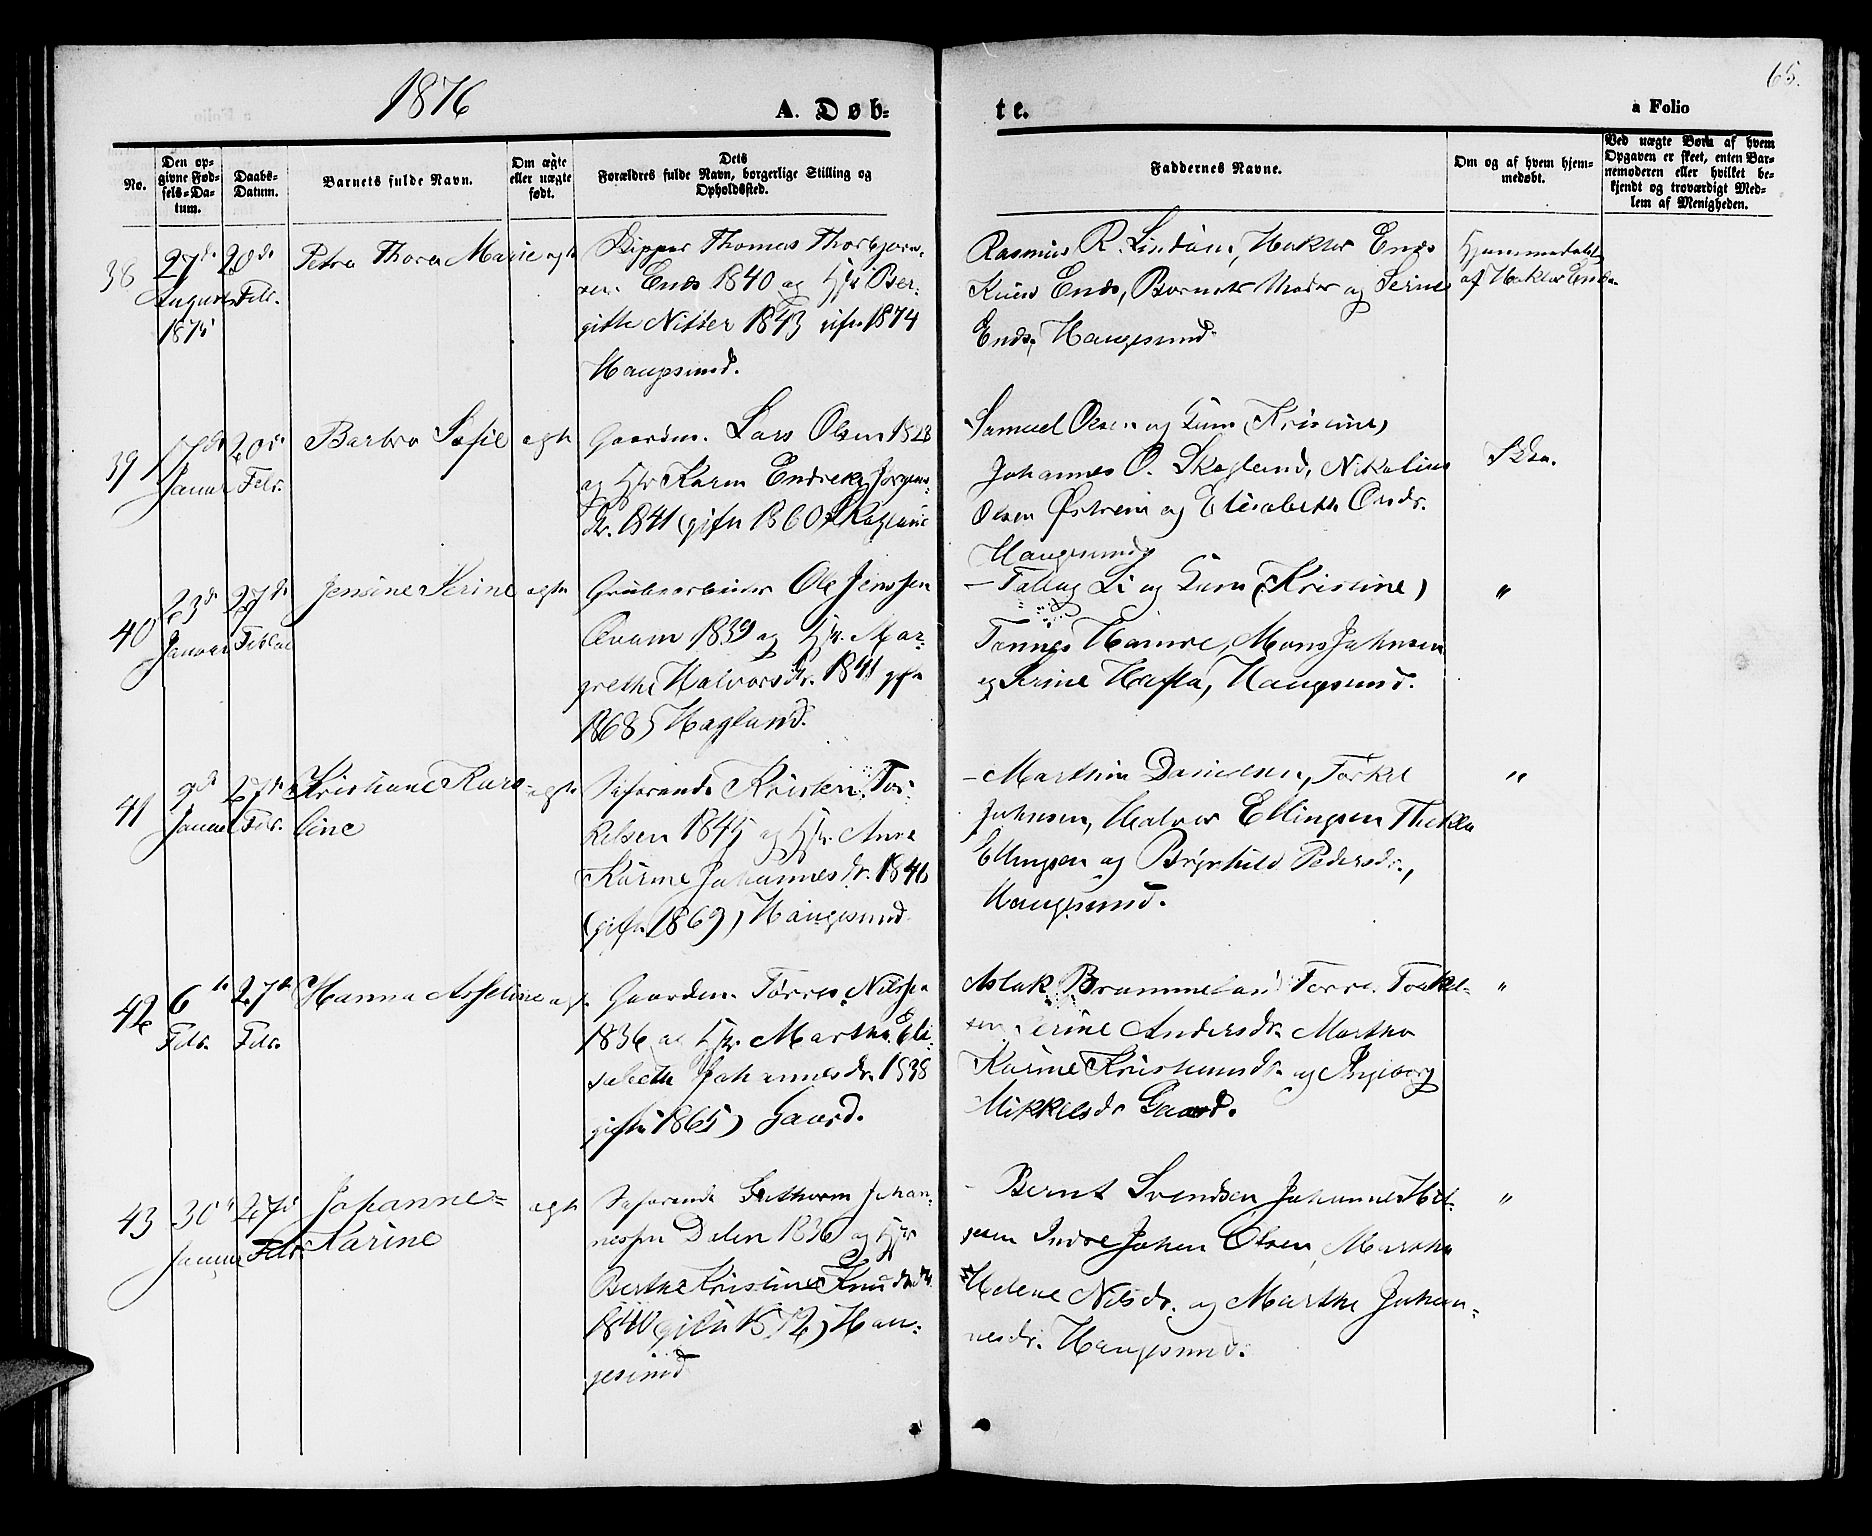 1876
A. Døb-
te.
a Folio
65.
No.
Den op-
givne Fød-
sels-Da-
tum.
Daabs-
Datum.
Barnets fulde Navn.
Om ægte
eller uægte
født.
Dets
Forældres fulde Navn, borgerlige Stilling og
Opholdssted.
Faddernes Navne.
Om og af hvem hjem-
medøbt.
Ved uægte Børn af hvem
Opgaven er skeet, enten Bar-
nemoderen eller hvilket be-
kjendt og troværdigt Med-
lem af Menigheden.
38
27de
August
1875
20de
Febr.
Petra Thora Marie
ægte
Skipper Thomas Thorbjørn-
sen Ends 1840 og Hstr Ber-
gitte Nitter 1843 gift 1874
Haugesund.
Rasmus R. Lindøen, Hektor Ends
Ends, Barnets Moder og Serine
Ends, Haugesund
Hjemmedøbt
af Hektor Ends
39
17de
Januar
20de
Febr.
Barbro Sofie
ægte
Gaardm. Lars Olsen 1828
og Hstr Karen Endrek Jørgens-
dr. 1841 (gift 1860) Skogland
Samuel Olsen og Kone (Kristine)
Johannes O. Skogland, Nikolius
Olsen Østrem og Elisabeth Onsdr.
Haugesund
40
23de
Januar
27de
Februar
Jensine Serine
ægte
Grubearbeider Ole Jenssen
Kvam 1839 og Hstr. Mar-
grethe Halvorsdr. 1841 gift
1868) Hagland.
- Tollag Li og Kone (Kristine)
Tønnes Hamre, Mons Johnsen
og Serine Hafta, Haugesund.
"
41
Januar
27de
Febr.
Kristiane Karo-
line
ægte
Søfarende Kristen Tor-
kelsen 1845 og Hstr. Anne
Karine Johannesdr. 1846
(gift 1869) Haugesund
- Marthin Danielsen, Torkel
Johnsen, Halvor Ellingsen Thekla
Ellingsen og Brynhild Pedersdr.,
Haugesund.
"
42
6te
Febr.
27de
Febr.
Hanna Asseline
ægt.
Gaardm. Tørres Nilssen
1836 og Hstr. Martha Eli-
sabeth Johannesdr. 1838
gift 1865) Gaard.
Aslak Brommeland Torre Torkel-
sen Serine Andersdr. Martha
Karine Kristiansdr. og Ingeborg
Mikkelsdr Gaard.
"
43
30te
Januar
27de
Febr.
Johanne-
Karine
ægte
Søfarende Guthorm Johan-
nessen Dalen 1836 og Hstr
Berthe Kristine Knudsdtr.
1840 (gift 1872) Hau-
gesund
- Bernt Svendsen Johanne Hel-
gesen Indre Johan Olsen, Martha
Helene Nilsdr. og Marthe Johan-
nesdr. Haugesund.
"